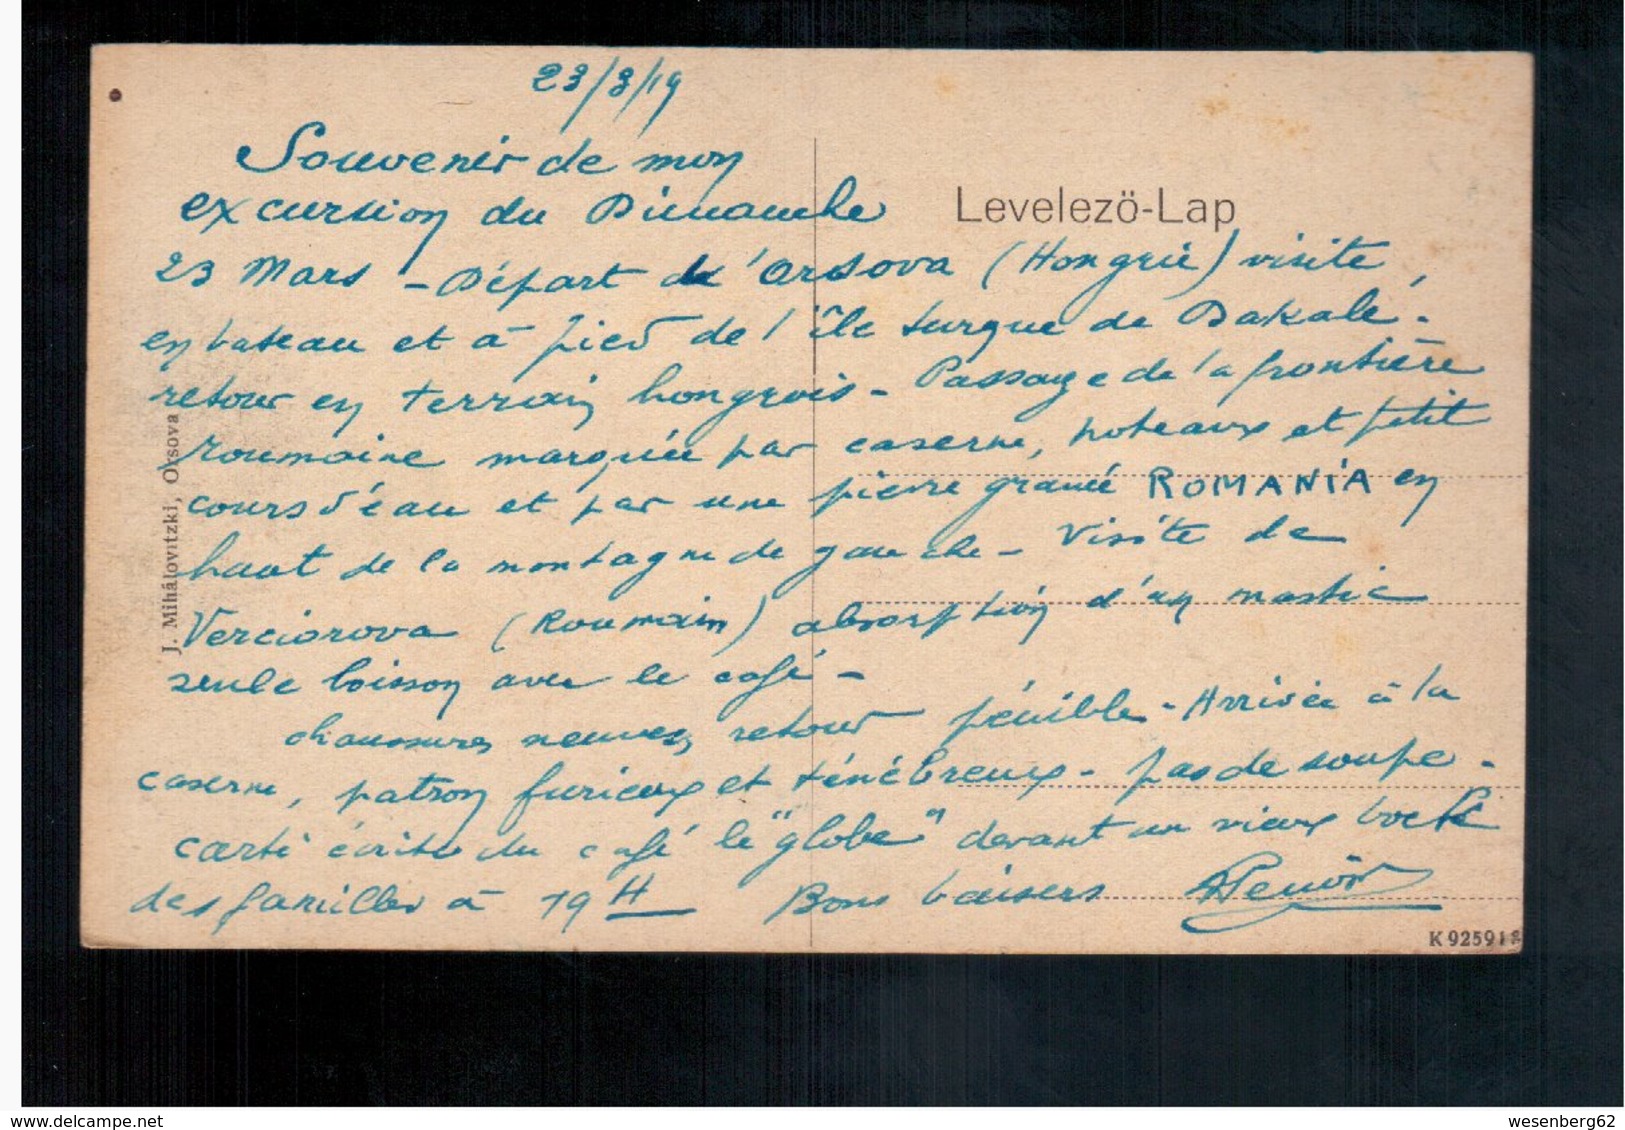 23/3/19
Souvenir de mon
excursion du Dimanche
Levelezö-Lap
23 Mars - Départ d'Orsova (Hongrie) visite,
en bateau et à pied de l'île turque de Dakalé.
retour en terrain hongrois - Passage de la frontière
roumaine marquée par caserne, poteaux et petit
cours d'eau et par une pierre gravée ROMANIA en
haut de la montagne de gauche - Visite de
Verciorova (Roumain) absorption d'un mastic
seule boisson avec le café -
chaussures neuves retour pénible - Arrivée à la
caserne, patron furieux et ténébreux - pas de soupe -
carte écrite du café le "globe" devant un vieux bock
des familles à 19 H Bons baisers
J. Mihálovitzki, Orsova
K 92591
wesenberg62